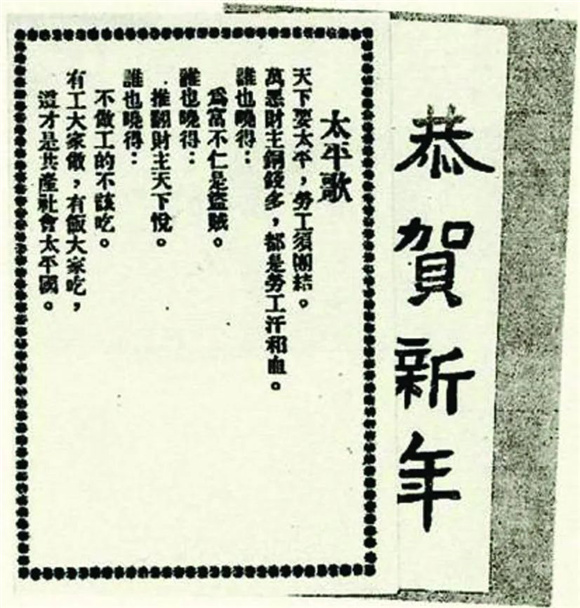 恭賀新年
太平歌
天下要太平，勞工須團結。
萬惡財主銅錢多，都是勞工汗和血。
誰也曉得：
爲富不仁是盜賊。
誰也曉得：
推翻財主天下悅。
誰也曉得：
不做工的不該吃。
有工大家做，有飯大家吃，
這才是共產社會太平國。